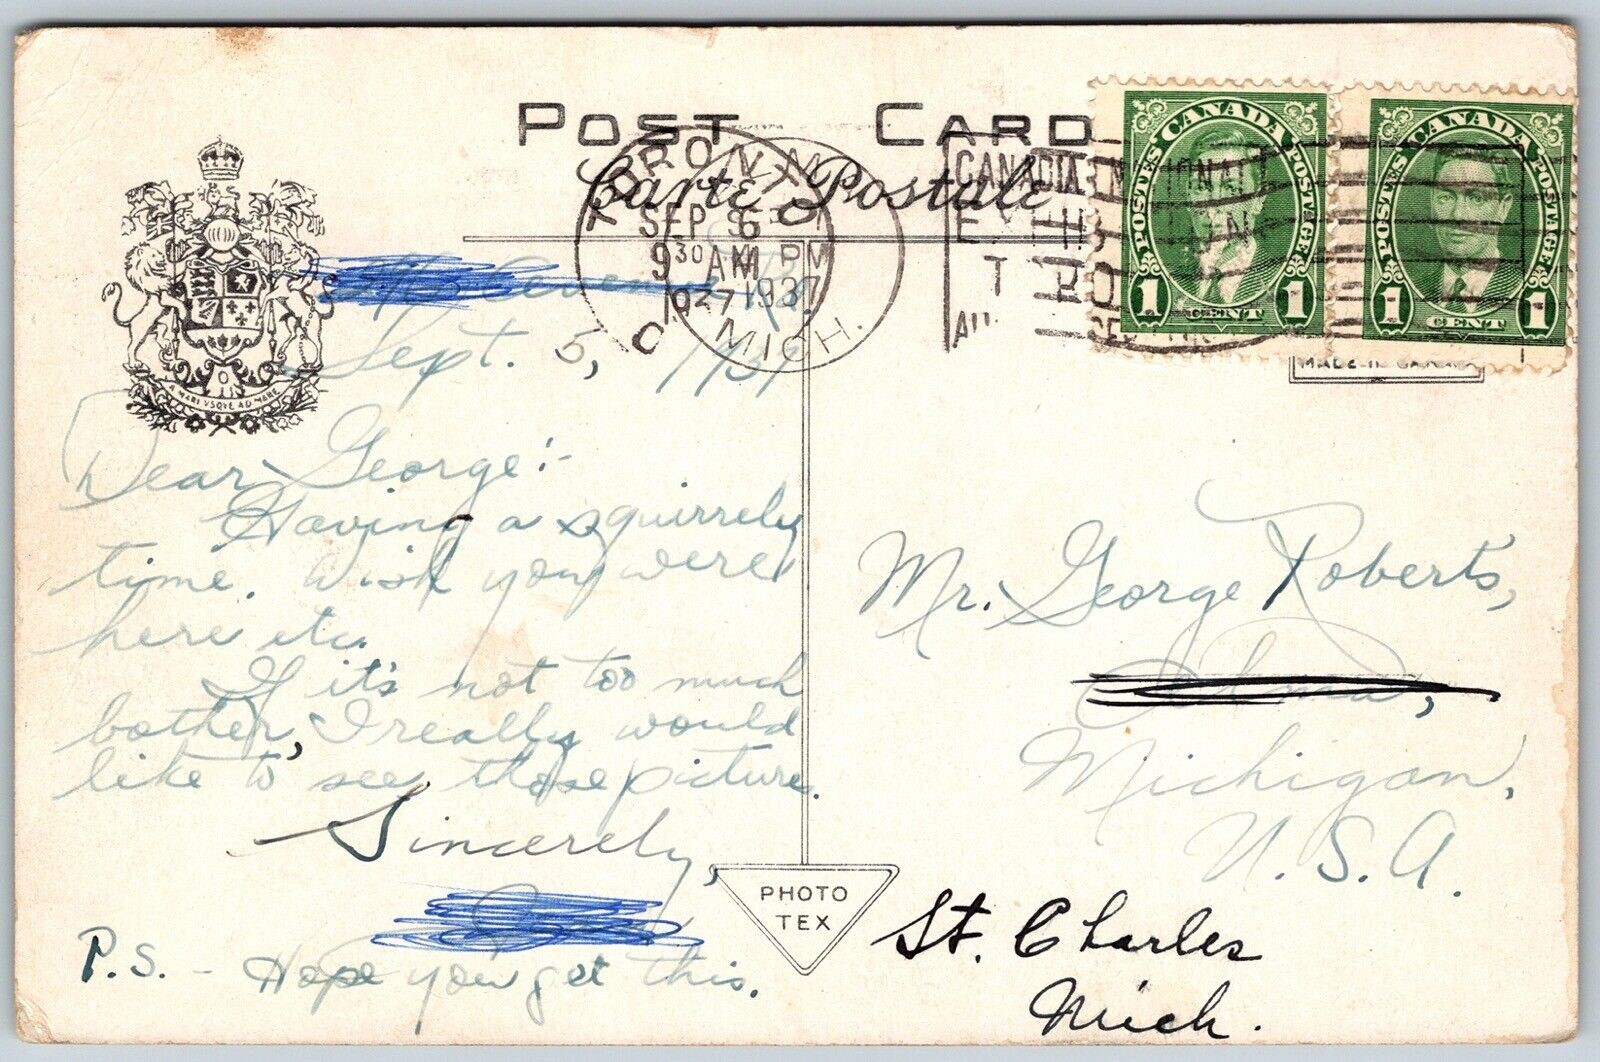 POST CARD
Carte Postale
TORONTO
SEP 6
9 30 AM
1937
MICH.
PM
1937
CANADIAN NATIONAL
POSTES CANADA POSTAGE
1 CENT 1
POSTES CANADA POSTAGE
1 CENT 1
MADE IN CANADA
A MARI VSQVE AD MARE
Sept. 5, 1937
Dear George:-
Having a squirrely
time. Wish you were
here etc.
If it's not too much
bother, I really would
like to see those picture.
Sincerely,
P.S. - Hope you get this.
PHOTO
TEX
Mr. George Roberts,
Alma,
Michigan,
U.S.A.
St. Charles
Mich.